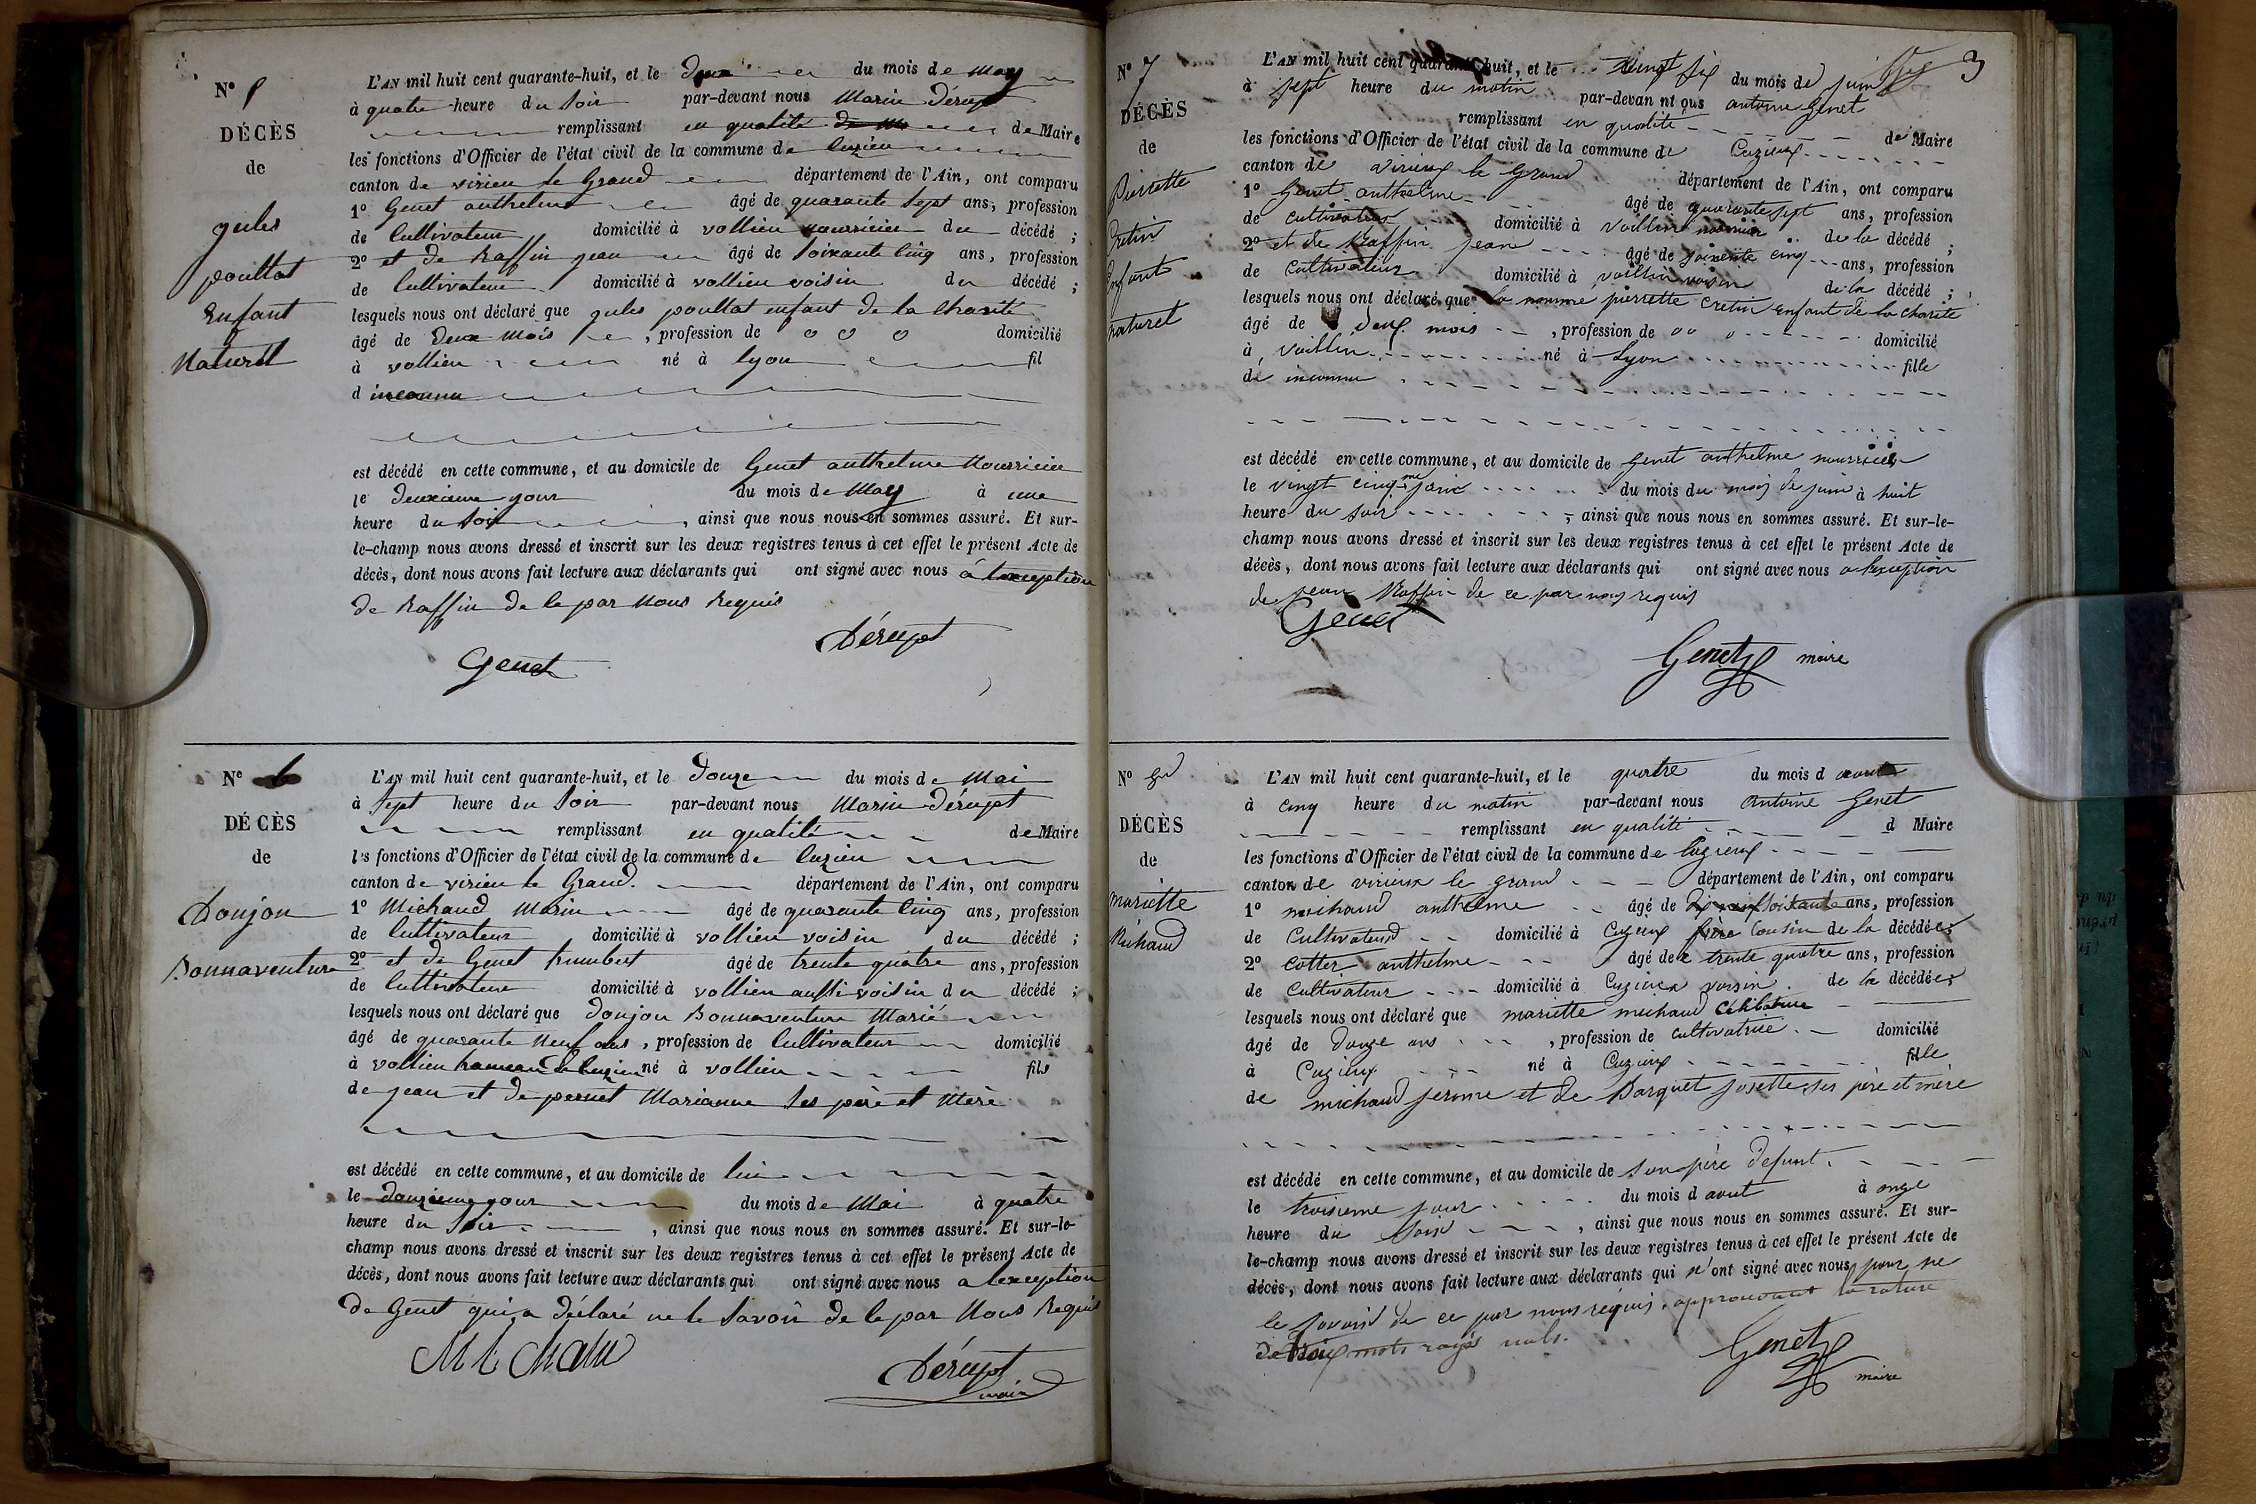 N°
DÉCÈS
de
gules
poullat
Enfant
Naturel
L'AN mil huit cent quarante-huit, et le deux du mois de may
à quatre heure du soir par-devant nous Marin Dérupt
remplissant en qualité de Maire
les fonctions d'Officier de l'état civil de la commune de Cuzieu
canton de virieu le Grand département de l'Ain, ont comparu
1° Genet anthelme âgé de quarante sept ans, profession
de Cultivateur domicilié à vollien nourricier du décédé ;
2° et de Raffin jean âgé de soixante cinq ans, profession
de Cultivateur domicilié à vollien voisin du décédé ;
lesquels nous ont déclaré que gules poullat enfant de la charité
âgé de deux mois , profession de o o o domicilié
à vollien né à lyon fil
d inconnu
est décédé en cette commune, et au domicile de Genet anthelme Nourricier
le deuxieme jour du mois de May à une
heure du soir , ainsi que nous nous en sommes assuré. Et sur-
le-champ nous avons dressé et inscrit sur les deux registres tenus à cet effet le présent Acte de
décès, dont nous avons fait lecture aux déclarants qui ont signé avec nous á lexception
de Raffin de le par Nous Requis
Dérupt
Genet
N° 6
DÉCÈS
de
Donjon
Bonnaventure
L'AN mil huit cent quarante-huit, et le douze du mois de Mai
à sept heure du soir par-devant nous Marin Dérupt
remplissant en qualité de Maire
les fonctions d'Officier de l'état civil de la commune de Cuzieu
canton de virieu le Grand. département de l'Ain, ont comparu
1° Michaud Marin âgé de quarante cinq ans, profession
de Cultivateur domicilié à vollien voisin du décédé ;
2° et de Genet humbert âgé de trente quatre ans, profession
de Cultivateur domicilié à vollien aussi voisin du décédé ;
lesquels nous ont déclaré que Donjon Bonnaventure Marié
âgé de quarante neuf ans , profession de Cultivateur domicilié
à vollien hameau de Cuzieu né à vollien fils
de jean et de pernet Marianne ses père et Mère
est décédé en cette commune, et au domicile de lui
le douzieme jour du mois de Mai à quatre
heure du soir , ainsi que nous nous en sommes assuré. Et sur-le-
champ nous avons dressé et inscrit sur les deux registres tenus à cet effet le présent Acte de
décès, dont nous avons fait lecture aux déclarants qui ont signé avec nous a lexception
de Genet qui a déclaré ne le savoir de le par Nous Requis
Dérupt
maire
3
N° 7
DÉCÈS
de
Pierrette
Cretin
Enfant
naturel
L'AN mil huit cent quarante-huit, et le vingt six du mois de juin
à sept heure du matin par-devan nt ous antoine Genet
remplissant en qualité de Maire
les fonctions d'Officier de l'état civil de la commune de Cuzieux
canton de virieux le grand département de l'Ain, ont comparu
1° Genet anthelme âgé de quarante sept ans, profession
de cultivateur domicilié à Voillin nourricier de la décédé ;
2° et de Raffin jean âgé de soixente cinq ans, profession
de Cultivateur domicilié à voillin voisin de la décédé ;
lesquels nous ont déclaré que la nomme pierrette cretin enfant de la charité
âgé de deux mois , profession de o o o domicilié
à voillin né à Lyon fille
de inconnu
est décédé en cette commune, et au domicile de Genet anthelme nourricier
le vingt cinq me juin du mois du mois de juin à huit
heure du soir ; ainsi que nous nous en sommes assuré. Et sur-le-
champ nous avons dressé et inscrit sur les deux registres tenus à cet effet le présent Acte de
décès, dont nous avons fait lecture aux déclarants qui ont signé avec nous a lexception
de jean Raffin de ce par nous requis
Genet
Genet maire
N°
DÉCÈS
de
Mariette
Michaud
L'AN mil huit cent quarante-huit, et le quatre du mois d aout
à cinq heure du matin par-devant nous antoine Genet
remplissant en qualité d Maire
les fonctions d'Officier de l'état civil de la commune de Cuzieux
canton de virieux le grand département de l'Ain, ont comparu
1° michaud anthelme âgé de soixante ans, profession
de Cultivateur domicilié à Cuzieux cousin de la décédée
2° cottet anthelme âgé de trente quatre ans, profession
de Cultivateur domicilié à Cuzieux voisin. de la décédée
lesquels nous ont déclaré que mariette michaud célibataire
âgé de douze ans , profession de cultivatrice. domicilié
à Cuzieux né à Cuzieux fille
de michaud jérome et de Barquet josette ses père et mère
est décédé en cette commune, et au domicile de son père defunt.
le troisieme jour du mois d aout à onze
heure du soir , ainsi que nous nous en sommes assuré. Et sur-
le-champ nous avons dressé et inscrit sur les deux registres tenus à cet effet le présent Acte de
décès, dont nous avons fait lecture aux déclarants qui n'ont signé avec nous pour ne
le savoir de ce par nous requis. approuvant la rature
de trois mots rayés nuls.
Genet
maire